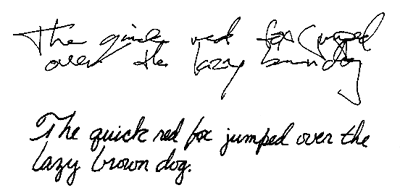 The quick red fox jumped
over the lazy brown dog
The quick red fox jumped over the
lazy brown dog.